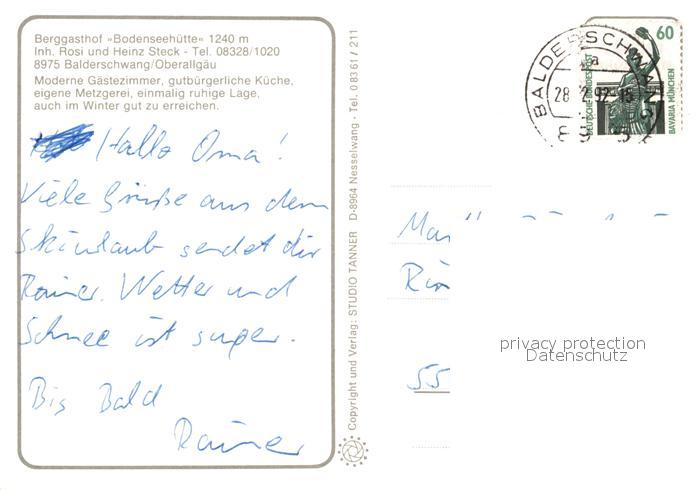 Berggasthof »Bodenseehütte« 1240 m
Inh. Rosi und Heinz Steck - Tel. 08328/1020
8975 Balderschwang/Oberallgäu
Moderne Gästezimmer, gutbürgerliche Küche,
eigene Metzgerei, einmalig ruhige Lage,
auch im Winter gut zu erreichen.
Hallo Oma!
Viele Grüße aus dem
Skiurlaub sendet dir
Rainer. Wetter und
Schnee ist super.
Bis Bald
Rainer
Copyright und Verlag: STUDIO TANNER D-8964 Nesselwang - Tel. 0 83 61 / 211
BALDERSCHWANG
a
28.2.92-15
60
DEUTSCHE BUNDESPOST
BAVARIA MÜNCHEN
55
privacy protection
Datenschutz